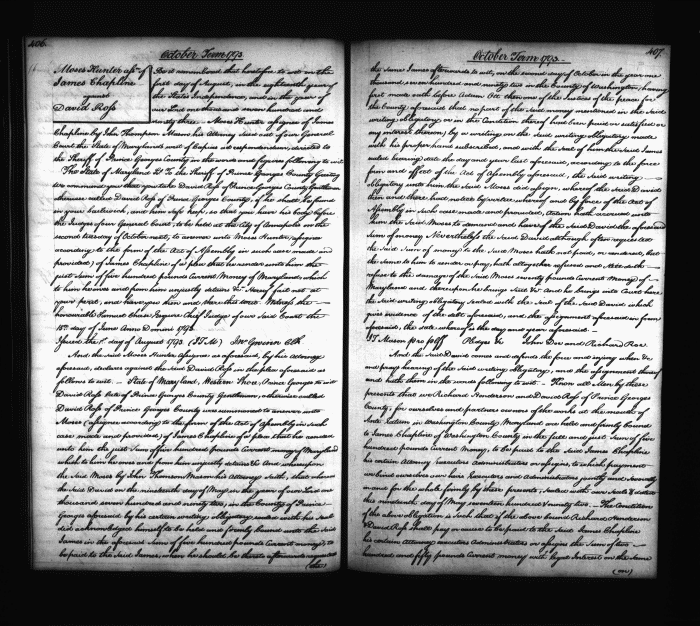 406
October Term 1793
Moses Hunter assee. of
James Chapline
against
David Ross
Be it remembered that heretofore to wit on the
first day of August, in the eighteenth year of
the State Independence, and in the year of
our Lord one thousand seven hundred and
ninety three. Moses Hunter assignee of James
Chapline by John Thompson Mason his Attorney sued out of our General
Court the State of Maryland's writ of Capias ad respondendum, directed to
the Sheriff of Prince Georges County in the words and figures following to wit
The State of Maryland to the Sheriff of Prince Georges County Greeting
we command you that you take David Ross of Prince Georges County Gentleman
otherwise called David Ross of Prince Georges County, if he shall be found
in your bailiwick, and him safe keep, so that you have his body before
the Judges of our General Court, to be held at the City of Annapolis on the
second tuesday of October next, to answer unto Moses Hunter, assignee
according to the form of the Act of Assembly in such case made and
provided, of James Chapline of a plea that he render unto him the
just Sum of five hundred pounds Current Money of Maryland which
to him he owes and from him unjustly detains &c. Hereof fail not at
your peril, and have you then and there this writ. Witness the
honourable Samuel Chase Esquire Chief Judge of our said Court the
day of June Anno Domini 1793.
Issued the 1st day of August 1793. (J T M) Jno Gwinn Clk
And the said Moses Hunter Assignee as aforesaid, by his attorney
aforesaid, declares against the said David Ross in the plea aforesaid as
follows to wit. - State of Maryland, Western Shore, Prince Georges to wit
David Ross late of Prince Georges County Gentleman, otherwise called
David Ross of Prince Georges County was summoned to answer unto
Moses assignee according to the form of the act of assembly in such
case made and provided, of James Chapline of a plea that he render
unto him the just Sum of five hundred pounds Current money of Maryland
which to him he owes and from him unjustly detains &c. And whereupon
the said Moses by John Thomson Mason his Attorney saith, that whereas
the said David on the nineteenth day of May in the year of our Lord one
thousand seven hundred and ninety two, in the County of Prince
Georges aforesaid by his certain writing obligatory sealed with his Seal
did acknowledge himself to be held and firmly bound unto the said
James in the aforesaid sum of five hundred pounds Current money to
be paid to the said James, when he should be thereto afterwards requested
407
October Term 1793
the same James afterwards to wit, on the second day of October in the year one
thousand seven hundred and ninety two in the County of Washington, having
first made oath before Adam Ott then one of the Justices of the peace for
the County aforesaid that no part of the said Sum mentioned in the said
writing obligatory, or in the Condition thereof had been paid or satisfied or
any interest thereon, by a writing on the said writing obligatory made
with his proper hand subscribed, and with the seal of him the said James
sealed bearing date the day and year last aforesaid, according to the force
form and effect of the Act of Assembly aforesaid, the said writing
obligatory unto him the said Moses did assign, whereof the said David
then and there had notice by virtue whereof and by force of the Act of
Assembly in such case made and provided, action hath accrued unto
him the said Moses to demand and have of the said David the aforesaid
Sum of money. Nevertheless the said David although often requested
the said Sum of money to the said Moses hath not paid, or rendered, but
the same to him to render or pay, hath altogether refused and still doth
refuse to the damage of the said Moses seventy pounds Current Money of
Maryland and thereupon he brings Suit &c. And he brings into Court here
the said writing obligatory sealed with the Seal of the said David which
gives evidence of the debt aforesaid, and the assignment aforesaid in form
aforesaid, the date whereof is the day and year aforesaid.
J T Mason pro plff Pledges &c John Doe and Richard Roe
And the said David comes and defends the force and injury when &c
and prays hearing of the said writing obligatory, and the assignment thereof
and hath them in the words following to wit - Know all Men by these
presents that we Richard Henderson and David Ross of Prince Georges
County, for ourselves and partners owners of the works at the mouth of
Ante Eatem in Washington County Maryland are held and firmly bound
to James Chapline of Washington County in the full and just Sum of five
hundred pounds Current Money, to be paid to the said James Chapline
his certain Attorney Executors Administrators or assigns, to which payment
we bind ourselves our heirs Executors and Administrators jointly and severally
and for the whole firmly by these presents, Sealed with our Seals & dated
this nineteenth day of May seventeen hundred & ninety two. - The Condition
of the above Obligation is such that if the above bound Richard Henderson
& David Ross shall pay or cause to be paid to the said James Chapline
his certain attorney executors Administrators or assigns the Sum of two
hundred and fifty pounds Current money with legal Interest on the same
(on)